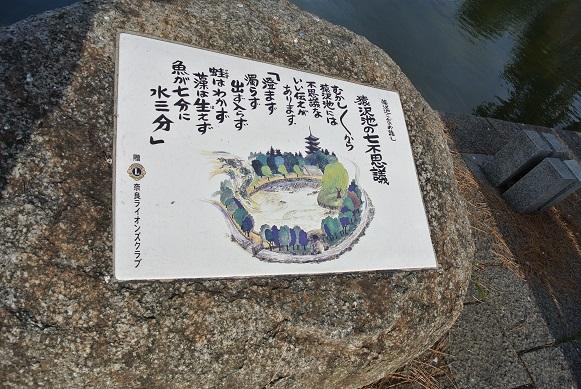 猿沢池の七不思議
むかし〳〵から
猿沢池には
不思議な
いい伝えが
あります。
「澄まず
濁らず
出ず入らず
蛙はわかず
藻は生えず
魚が七分に
水三分」
贈
奈良ライオンズクラブ